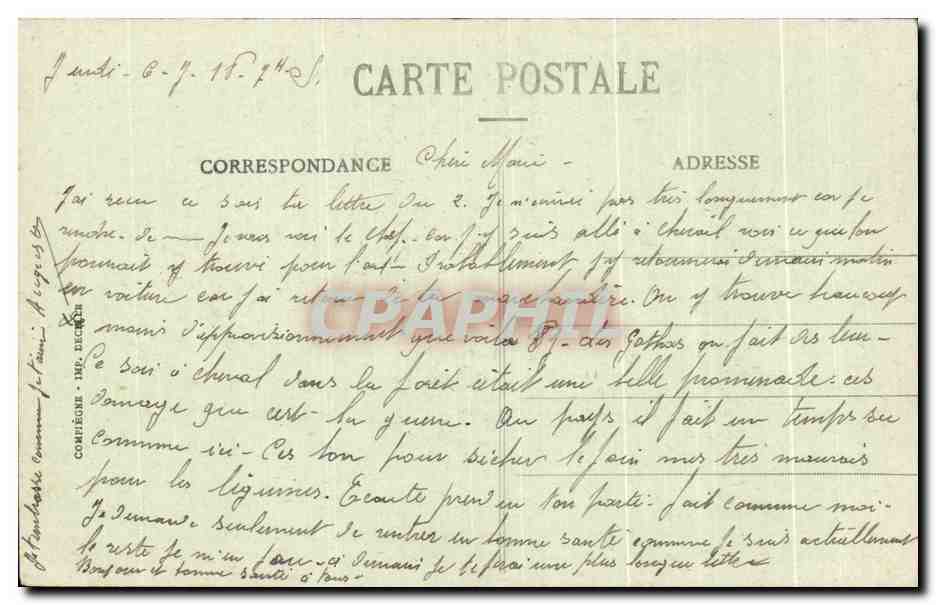 Jeudi - 6 - 7 - 18 - 7H - S.
CARTE POSTALE
CORRESPONDANCE
Chère Marie -
ADRESSE
J'ai reçu ce soir ta lettre du 2. Je n'écris pas très longuement car je
rendre - de Je vous voir le chef - car j'y suis allé à cheval voir ce que l'on
pourrait y trouvé pour l' Probablement j'y retournerai demain matin
en voiture car j'ai On y trouve beaucoup
moins d'approvisionnement que voila des Gothas on fait des leur
Ce soir à cheval dans la forêt c'était une belle promenade - ces
domage que c'est la guerre. Au pays il fait un temps sec
comme ici - Ces bon pour sècher le foin mes très mauvais
pour les légumes. Ecoute prend en ton parti - fait comme moi -
Je demande seulement de rentrer en bonne santé comme je suis actuellement
le reste je m'en fou - à demain je te ferai une plus longue lettre
Bonjour et bonne santé à tous -
Je t'embrasse comme je t'aime Auguste
COMPIÈGNE - IMP. DECELER
CPAPHIL